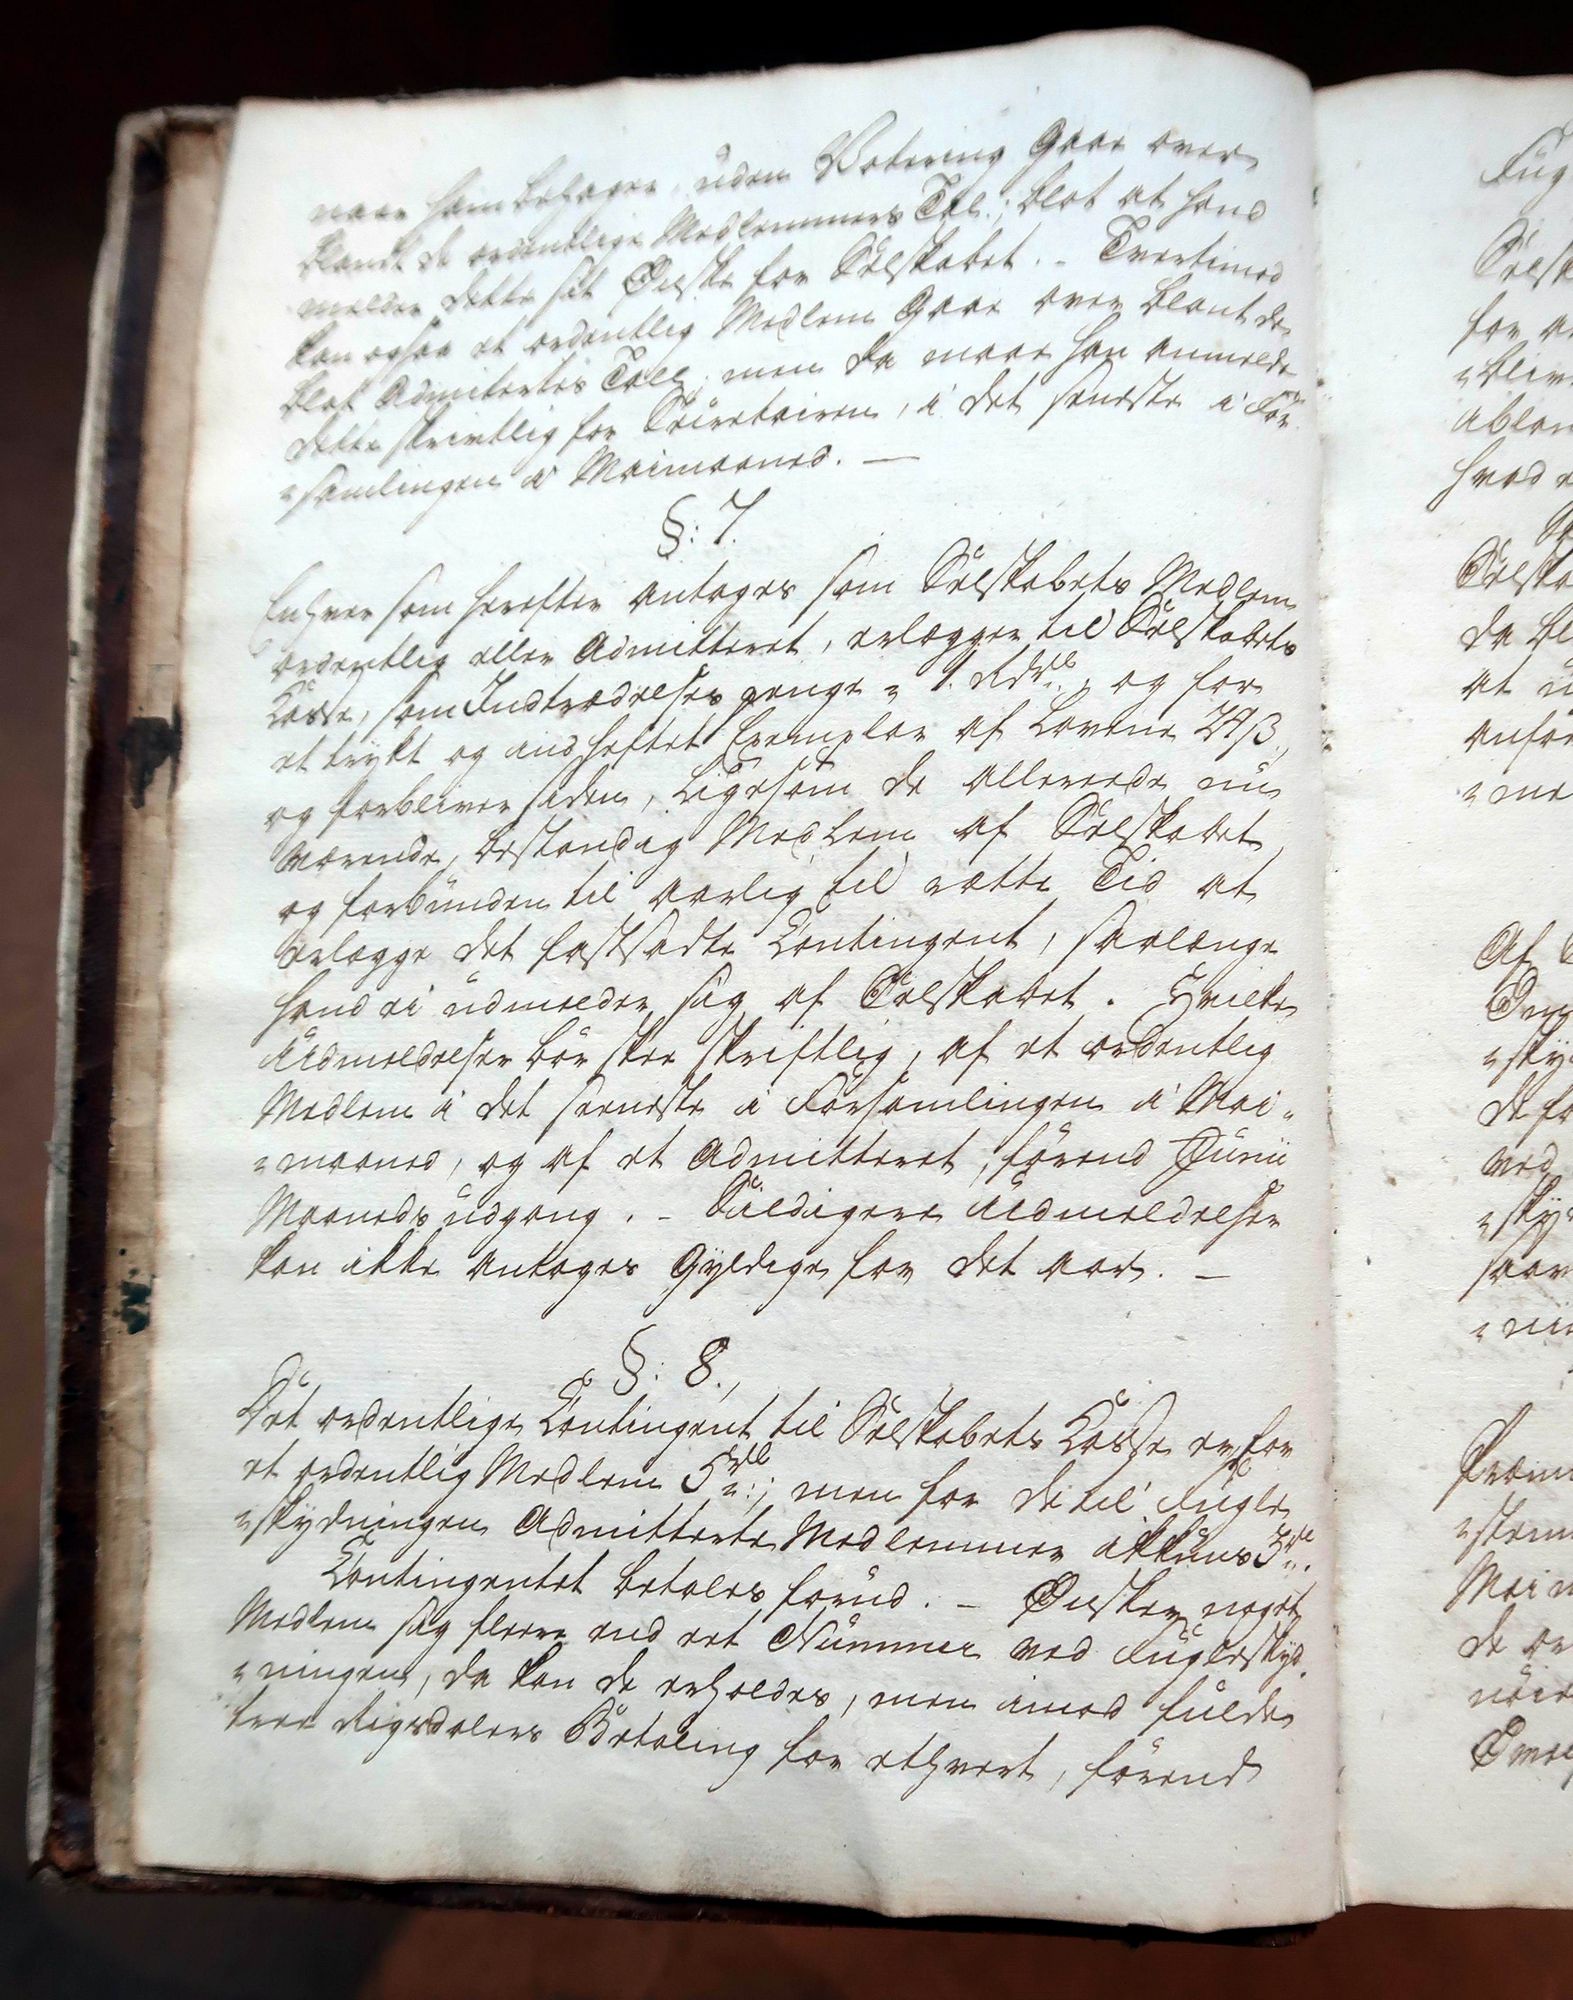 naar ham behager, uden Votering Gaae over
blandt de ordentlige Medlemmers Tal; blot at hand
melder dette sit Ønske for Selskabet. - Tvertimod
kan ogsaa et ordentlig Medlem Gaae over blant de
blot Admitertes Tall, men da maae han anmelde
dette skrivtlig for Secretairen, i det seneste i For
=samlingen i Maimaaned. —
§: 7.
Enhver som herefter antages som Selskabets Medlem
ordentlig eller Admitteret, erlægger til Selskabets
Casse, som Indtrædelses penge = 1. Rdle. og for
et trykt og indheftet Exemplar af Lovene 24 ß,
og forbliver siden, ligesom de allereede nu
værende, bestandig Medlem af Selskabet,
og forbunden til aarlig til rette Tid at
erlægge det fastsadte Contingent, saalænge
hand ei udmelder sig af Selskabet. Hvilke
Udmeldelser bør skee skriftlig, af et ordentlig
Medlem i det seeneste i Forsamlingen i Mai=
=maaned, og af et Admitteret, førend Junii
Maaneds udgang. - Sildigere Udmeldelser
kan ikke antages Gyldige for det aar. —
§: 8.
Det ordentlige Contingent til Selskabets Casse er for
et ordentlig Medlem 5 rdle; men for de til Fugle
=skydningen Admitterte Medlemmer ikkuns 3 rdle.
Contingentet betales forud. - Ønsker noget
Medlem sig fleere end eet Nummer ved Fugleskyd=
=ningen, da kan de erholdes, men imod fulde
tree Rigsdalers Betaling for ethvert, førend
Fug
Selsk
for
=bliv
hvad
Selska
da
at
=me
Af
=sky
de fo
ved
=sky
Mai
de or